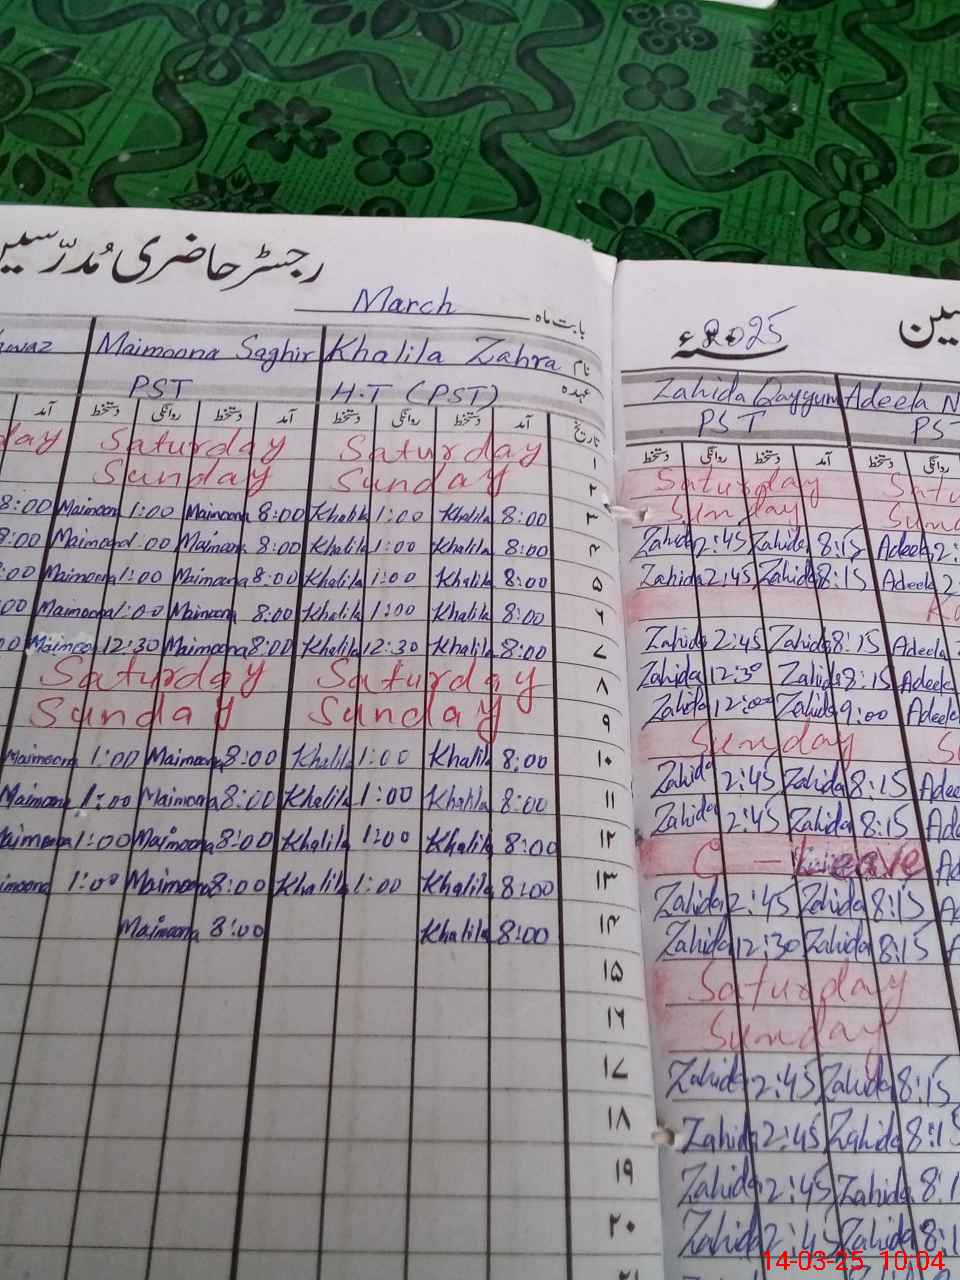 رجسٹر حاضری مُدرّسین
بابت ماہ March
2025ء
نام Khalila Zahra Maimoona Saghir
عہدہ H.T (PST) PST
تاریخ آمد دستخط روانگی دستخط آمد دستخط روانگی دستخط آمد
۱ Saturday Saturday
۲ Sunday Sunday
۳ 8:00 Khalila 1:00 Khalila 8:00 Maimoona 1:00 Maimoona 8:00
۴ 8:00 Khalila 1:00 Khalila 8:00 Maimoona 1:00 Maimoona 8:00
۵ 8:00 Khalila 1:00 Khalila 8:00 Maimoona 1:00 Maimoona :00
۶ 8:00 Khalila 1:00 Khalila 8:00 Maimoona 1:00 Maimoona 00
۷ 8:00 Khalila 12:30 Khalila 8:00 Maimoona 12:30 Maimoona 0
۸ Saturday Saturday
۹ Sunday Sunday
۱۰ 8:00 Khalila 1:00 Khalila 8:00 Maimoona 1:00 Maimoona
۱۱ 8:00 Khalila 1:00 Khalila 8:00 Maimoona 1:00 Maimoona
۱۲ 8:00 Khalila 1:00 Khalila 8:00 Maimoona 1:00 Maimoona
۱۳ 8:00 Khalila 1:00 Khalila 8:00 Maimoona 1:00 imoona
۱۴ 8:00 Khalila 8:00 Maimoona
۱۵
۱۶
۱۷
۱۸
۱۹
۲۰
Zahida Qayyum Adeela N
PST PST
دستخط روانگی دستخط آمد دستخط روانگی
Saturday Satu
Sunday Sund
Zahida 2:45 Zahida 8:15 Adeela 2:
Zahida 2:45 Zahida 8:15 Adeela 2
Zahida 2:45 Zahida 8:15 Adeela
Zahida 12:30 Zahida 8:15 Adeela
Zahida 12:00 Zahida 9:00 Adeel
Sunday S
Zahida 2:45 Zahida 8:15 Adee
Zahida 2:45 Zahida 8:15 Ade
C – Leave Ad
Zahida 2:45 Zahida 8:15 A
Zahida 12:30 Zahida 8:15
Saturday
Sunday
Zahida 2:45 Zahida 8:15
Zahida 2:45 Zahida 8:15
Zahida 2:45 Zahida 8:1
Zahida 2:45 Zahida 8:1
14-03-25 10:04